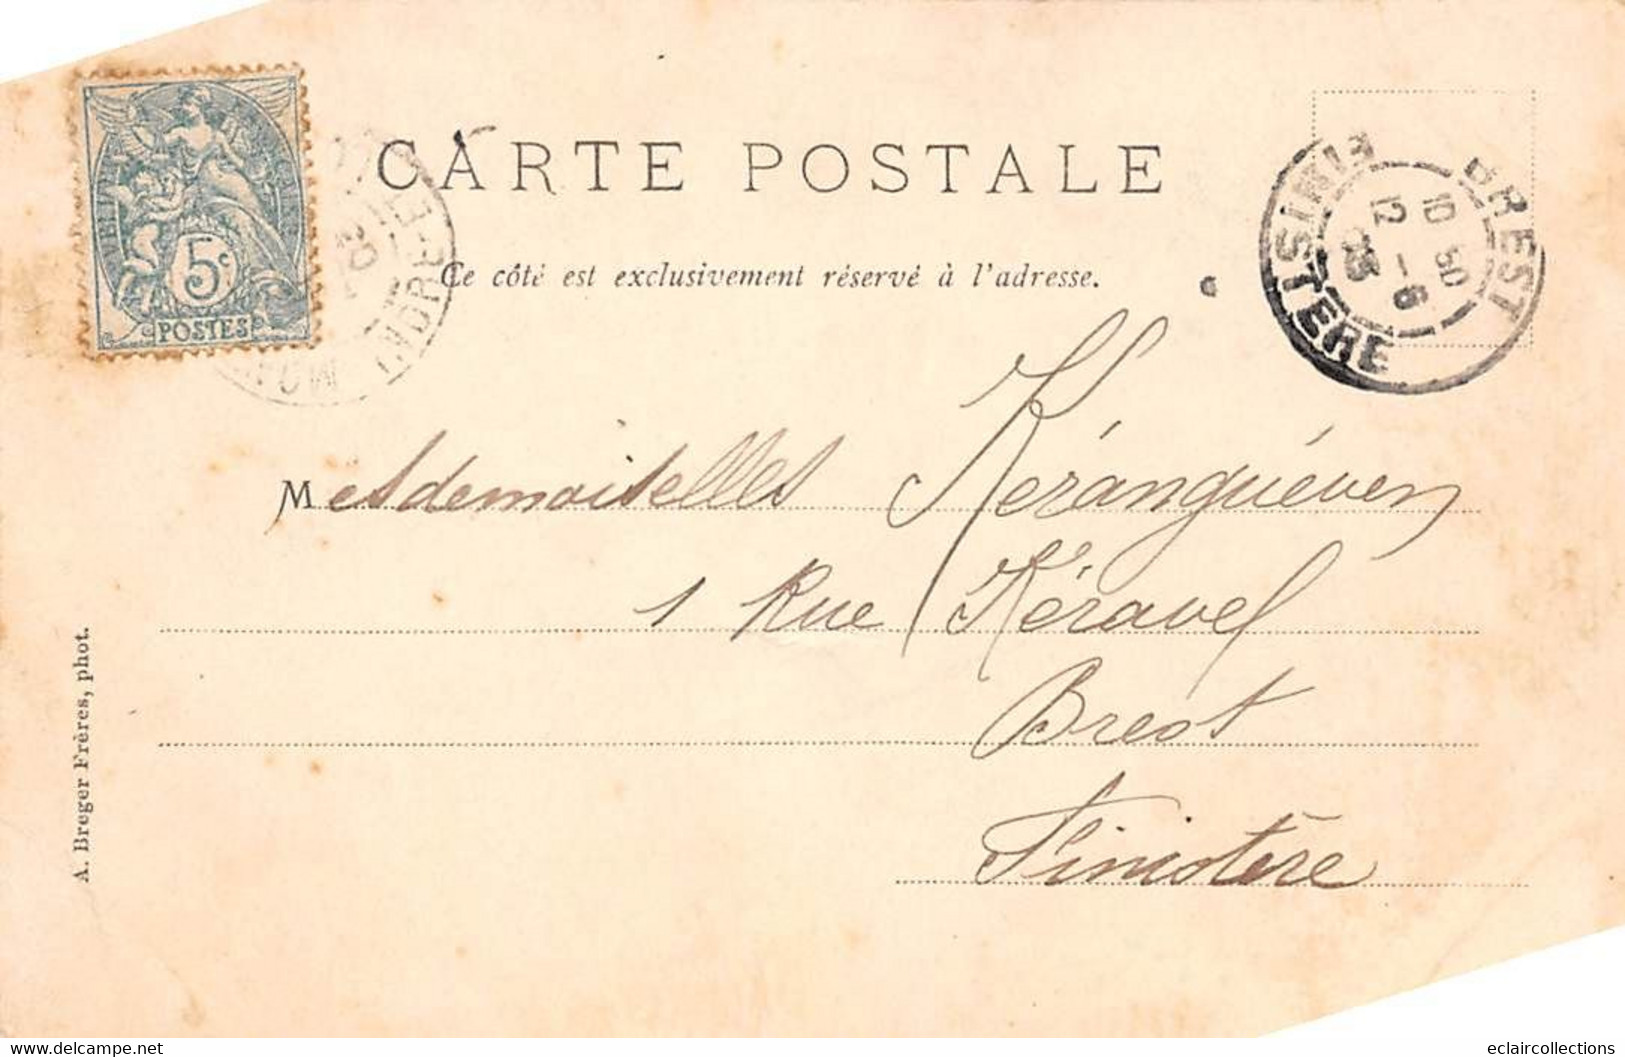 CARTE POSTALE
Ce côté est exclusivement réservé à l'adresse.
5c
POSTES
INDRE-ET-
BREST
FINISTERE
10 50
12 - 6
03
Mesdemoiselles Kéranguéven
1 Rue Kéravel
Brest
Finistère
A. Breger Frères, phot.
www.delcampe.net
eclaircollections